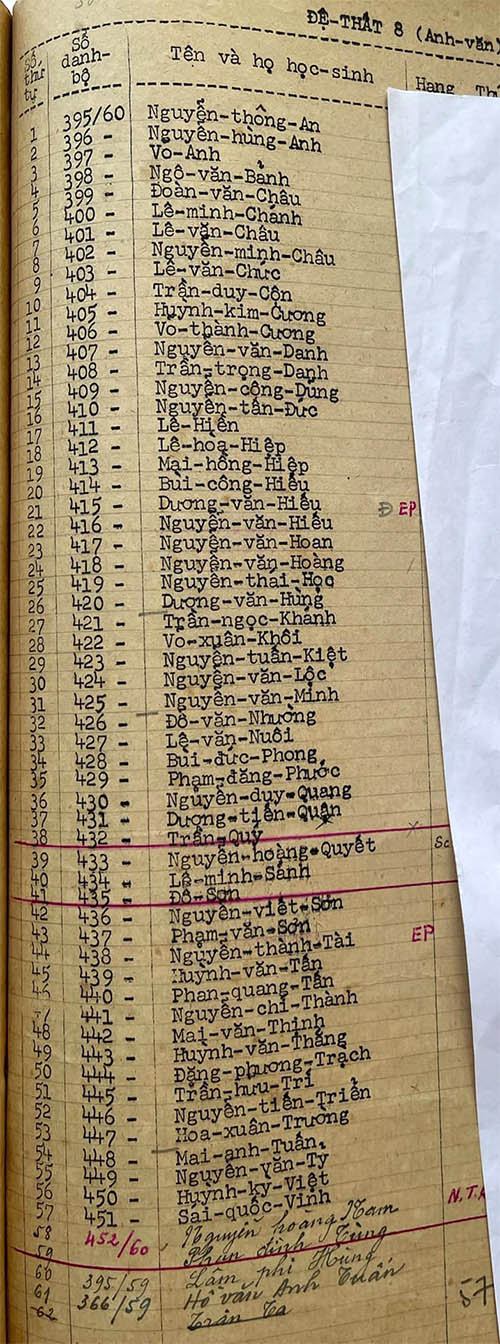 ĐỆ-THẤT 8 (Anh-văn)
Số thứ tự Số danh-bộ Tên và họ học-sinh Hạng
1 395/60 Nguyễn-thông-An
2 396 - Nguyễn-hùng-Anh
3 397 - Vo-Anh
4 398 - Ngô-văn-Bảnh
5 399 - Đoàn-văn-Châu
6 400 - Lê-minh-Chánh
7 401 - Lê-văn-Châu
8 402 - Nguyễn-minh-Châu
9 403 - Lê-văn-Chức
10 404 - Trần-duy-Côn
11 405 - Huỳnh-kim-Cương
12 406 - Vo-thành-Cương
13 407 - Nguyễn-văn-Danh
14 408 - Trần-trọng-Danh
15 409 - Nguyễn-công-Dũng
16 410 - Nguyễn-tấn-Đức
17 411 - Lê-Hiền
18 412 - Lê-hòa-Hiệp
19 413 - Mai-hồng-Hiệp
20 414 - Bùi-công-Hiếu
21 415 - Dương-văn-Hiếu Đ EP
22 416 - Nguyễn-văn-Hiếu
23 417 - Nguyễn-văn-Hoan
24 418 - Nguyễn-văn-Hoàng
25 419 - Nguyễn-thai-Học
26 420 - Dương-văn-Hùng
27 421 - Trần-ngọc-Khánh
28 422 - Vo-xuân-Khôi
29 423 - Nguyễn-tuấn-Kiệt
30 424 - Nguyễn-văn-Lộc
31 425 - Nguyễn-văn-Minh
32 426 - Đỗ-văn-Nhường
33 427 - Lê-văn-Nuôi
34 428 - Bùi-đức-Phong
35 429 - Phạm-đăng-Phước
36 430 - Nguyễn-duy-Quang
37 431 - Dương-tiến-Quân
38 432 - Trần-Quý x
39 433 - Nguyễn-hoàng-Quyết Sc
40 434 - Lê-minh-Sánh
41 435 - Đỗ-Sơn
42 436 - Nguyễn-viết-Sơn
43 437 - Phạm-văn-Sơn EP
44 438 - Nguyễn-thành-Tài
45 439 - Huỳnh-văn-Tấn
440 - Phan-quang-Tấn
441 - Nguyễn-chí-Thành
48 442 - Mai-văn-Thịnh
49 443 - Huỳnh-văn-Thắng
50 444 - Đặng-phương-Trạch
51 445 - Trần-hưu-Trí
52 446 - Nguyễn-tiến-Triển
53 447 - Hoa-xuân-Trường
54 448 - Mai-anh-Tuấn
55 449 - Nguyễn-văn-Tý
56 450 - Huỳnh-ky-Việt
57 451 - Sai-quốc-Vinh N.T.
58 452/60 Nguyễn hoàng Nam
59 Phan đình Tùng
60 395/59 Lâm phi Hùng
61 366/59 Hồ văn Anh Tuấn
62 Trần Ta 57